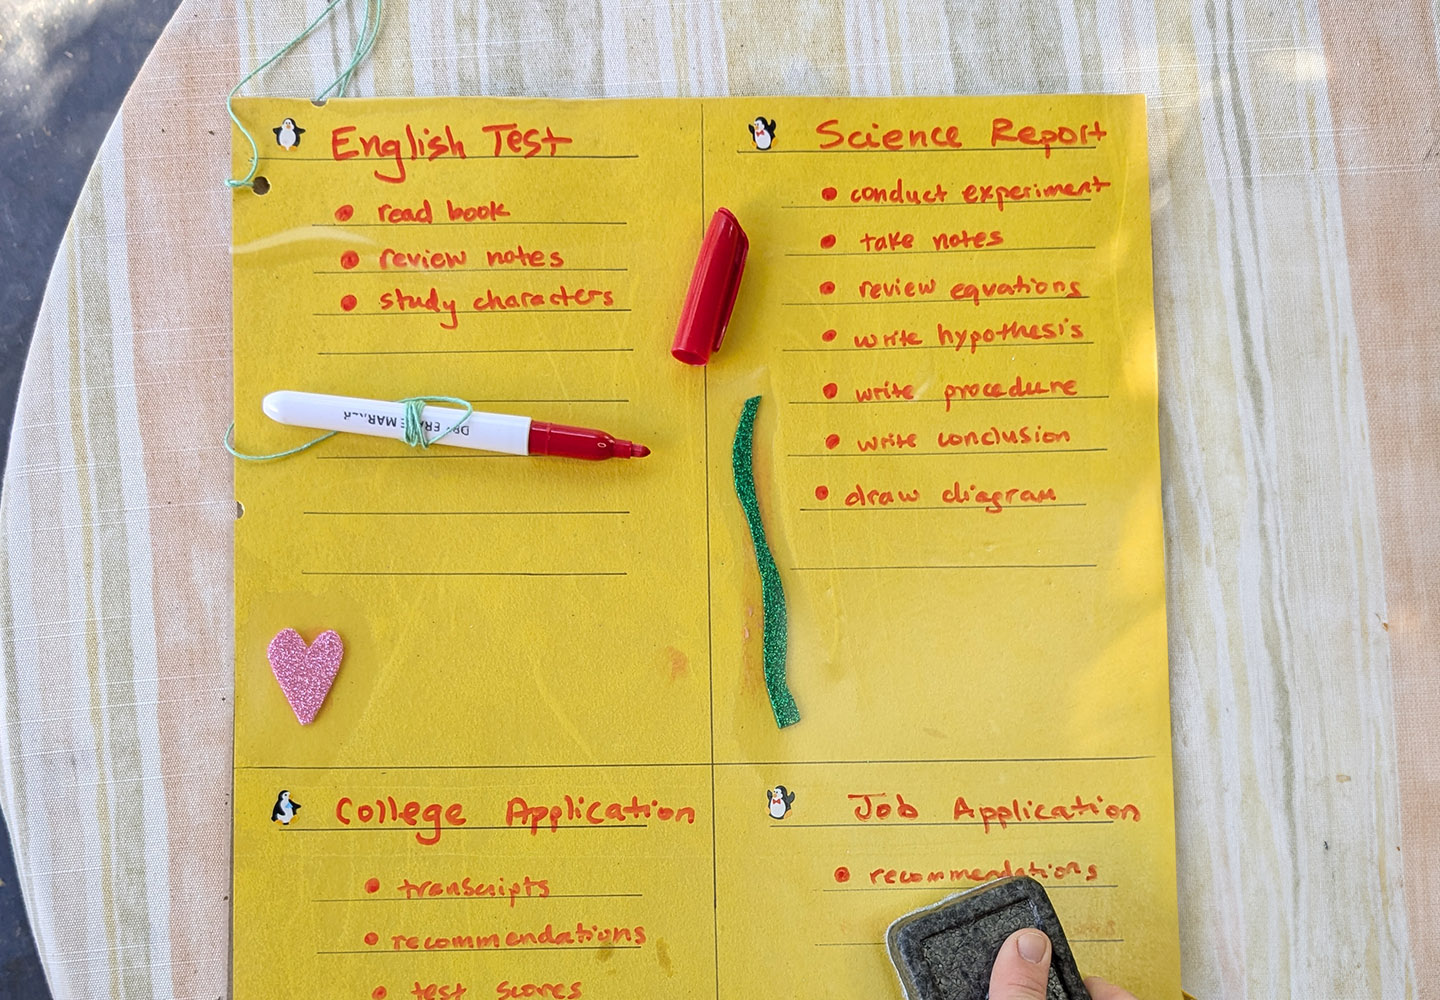 English Test
read book
review notes
study characters
DRY ERASE MARKER
Science Report
conduct experiment
take notes
review equations
write hypothesis
write procedure
write conclusion
draw diagram
College Application
transcripts
recommendations
test scores
Job Application
recommendations